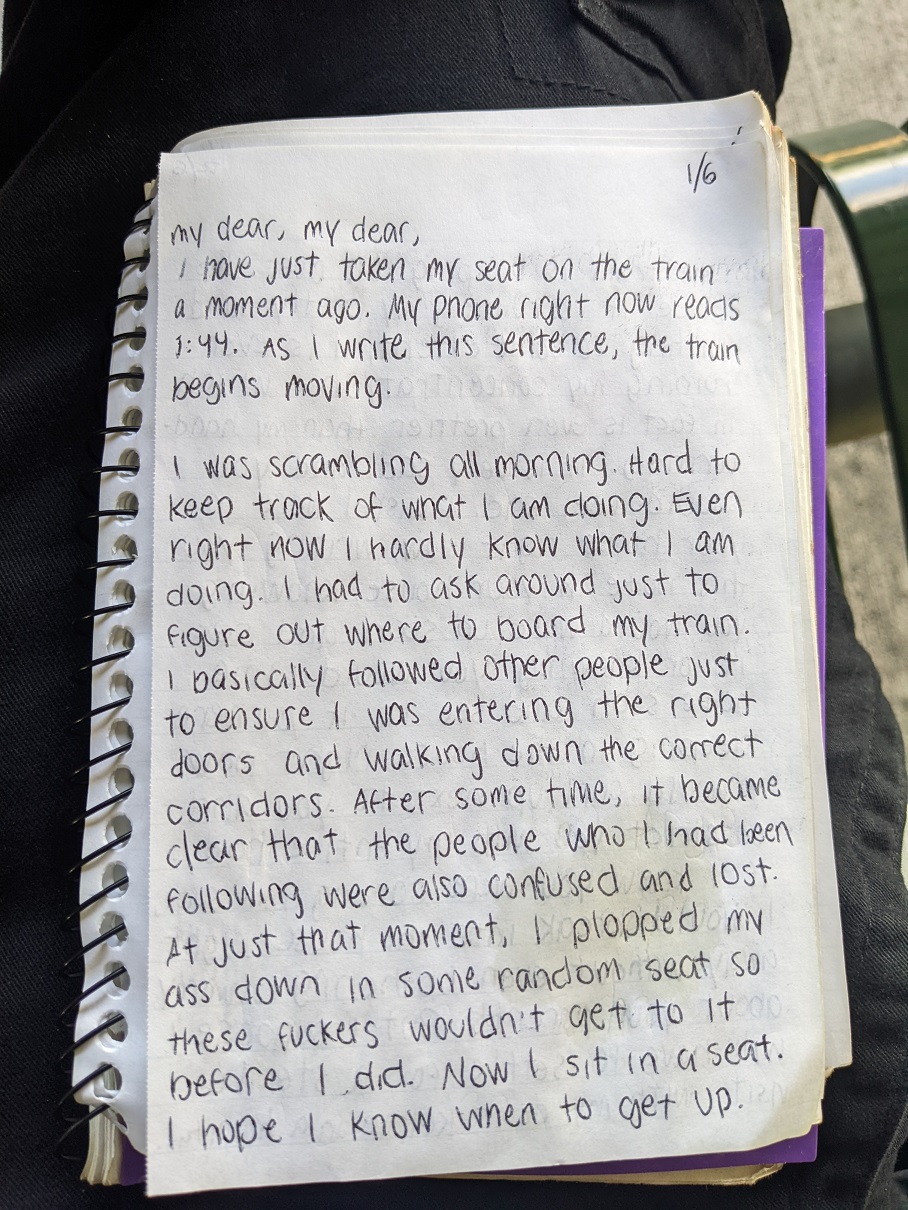 1/6
my dear, my dear,
I have just taken my seat on the train
a moment ago. My phone right now reads
1:44. As I write this sentence, the train
begins moving.
I was scrambling all morning. Hard to
keep track of what I am doing. Even
right now I hardly know what I am
doing. I had to ask around just to
figure out where to board my train.
I basically followed other people just
to ensure I was entering the right
doors and walking down the correct
corridors. After some time, it became
clear that the people who I had been
following were also confused and lost.
At just that moment, I plopped my
ass down in some random seat so
these fuckers wouldn't get to it
before I did. Now I sit in a seat.
I hope I know when to get up.